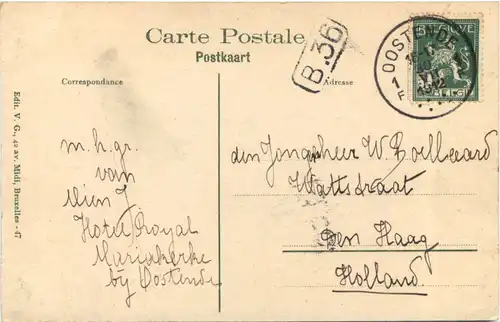 Carte Postale
Postkaart
Correspondance
Adresse
B.36
OOSTENDE
1F
1912
BELGIQUE
BELGIË
m. h. gr.
van
Wien J.
Hotel Royal
Mariakerke
by Oostende
den Jongeheer W. Boellaard
Wattstraat
Den Haag
Holland.
Edit. V. G., 42 av. Midi, Bruxelles - 47